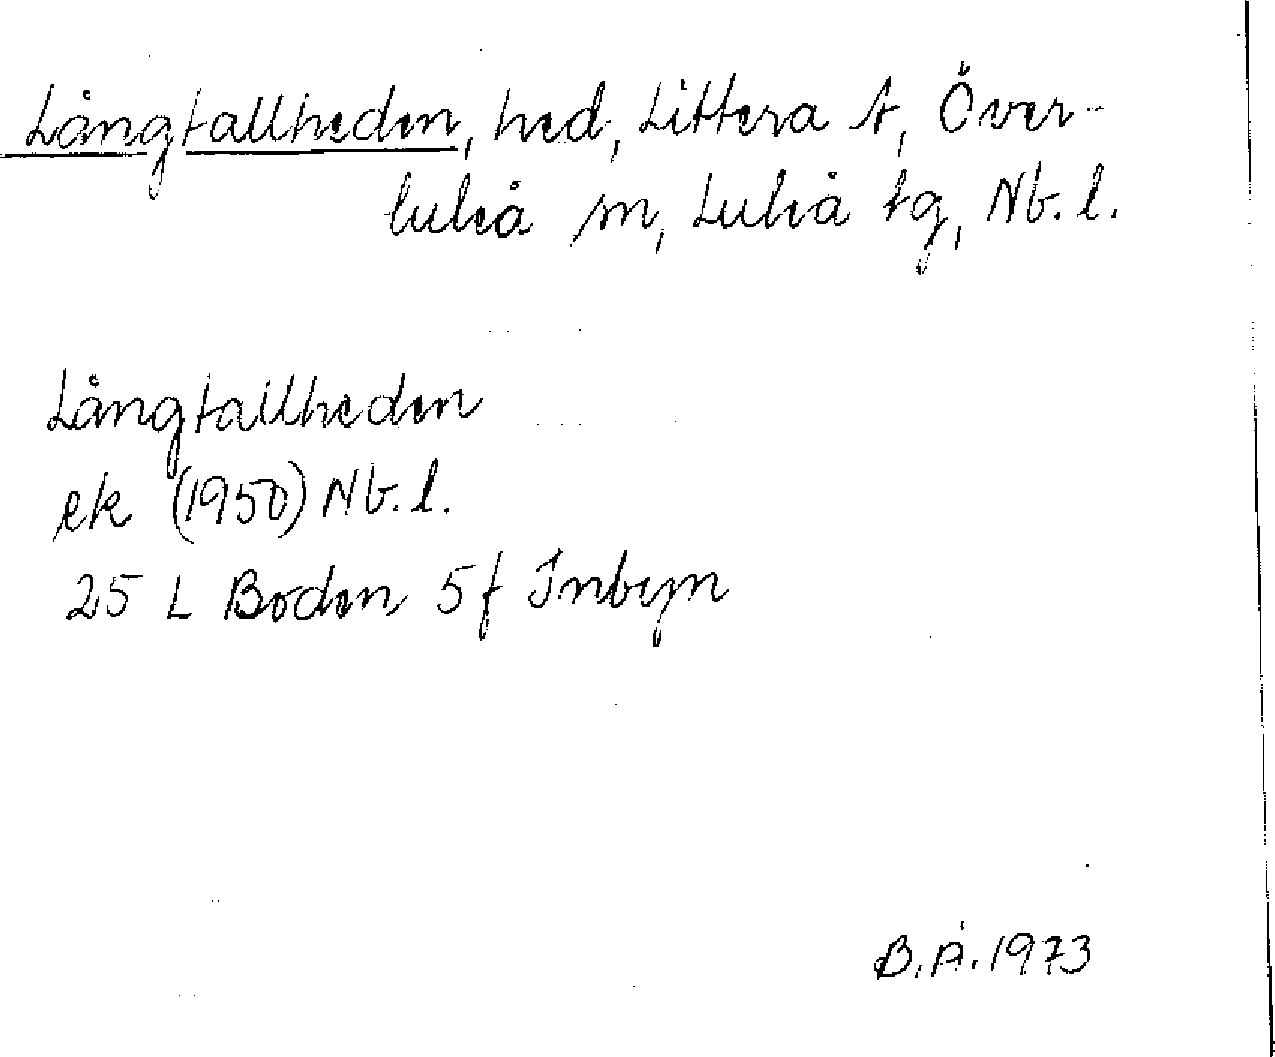 Långtallheden, hed, Littera A, Över-
luleå sn, Luleå tg, Nb. l.
Långtallheden
ek (1950) Nb. l.
25 L Boden 5f Inbyn
B.Å. 1973